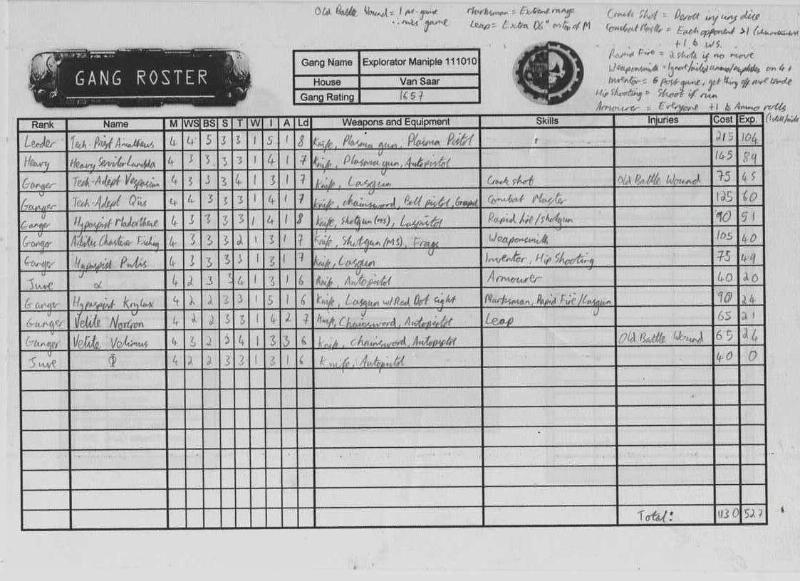 Old Battle Wound = 1 pre-game
∴ miss game
Marksman = Extreme range
Leap = Extra D6" on top of M
Crack Shot = Reroll injury dice
Combat Master = Each opponent >1
+1 to WS.
Rapid Fire = 2 shots if no move
Weaponsmith = Ignore failed ammo/explodes on 4+
Inventor = 6 post game, get thing off rare trade
Hip Shooting = Shoot if run
Armourer = Everyone +1 to Ammo rolls
GANG ROSTER
Gang Name Explorator Maniple 111010
House Van Saar
Gang Rating 1657
Rank Name M WS BS S T W I A Ld Weapons and Equipment Skills Injuries Cost Exp.
Leader Tech-Priest 4 4 5 3 3 1 5 1 8 Knife, Plasma gun, Plasma Pistol 215 104
Heavy Heavy Servitor 4 3 3 3 3 1 4 1 7 Knife, Plasmagun, Autopistol 165 89
Ganger Tech-Adept Vespasian 4 3 3 3 4 1 3 1 7 Knife, Lasgun Crack shot Old Battle Wound 75 45
Ganger Tech-Adept 4 4 3 3 3 1 4 1 7 Knife, chainsword, Bolt pistol, Combat Master 125 60
Ganger Hypaspist 4 3 3 3 3 1 4 1 8 Knife, Shotgun (MS), Laspistol Rapid fire/shotgun 90 51
Ganger 4 3 3 3 2 1 3 1 7 Knife, Shotgun (MS), Frags Weaponsmith 105 40
Ganger Hypaspist 4 3 3 3 3 1 3 1 7 Knife, Lasgun Inventor, Hip Shooting 75 49
Juve α 4 2 3 3 4 1 3 1 6 Knife, Autopistol Armourer 40 20
Ganger Hypaspist 4 2 2 3 3 1 5 1 6 Knife, Lasgun w/Red Dot sight Marksman, Rapid Fire/Lasgun 90 24
Ganger Velite 4 2 2 3 3 1 4 2 7 Knife, Chainsword, Autopistol Leap 65 21
Ganger Velite 4 3 2 2 4 1 3 3 6 Knife, Chainsword, Autopistol Old Battle Wound 65 24
Juve Φ 4 2 2 3 3 1 3 1 6 Knife, Autopistol 40 0
Total: 1130 527